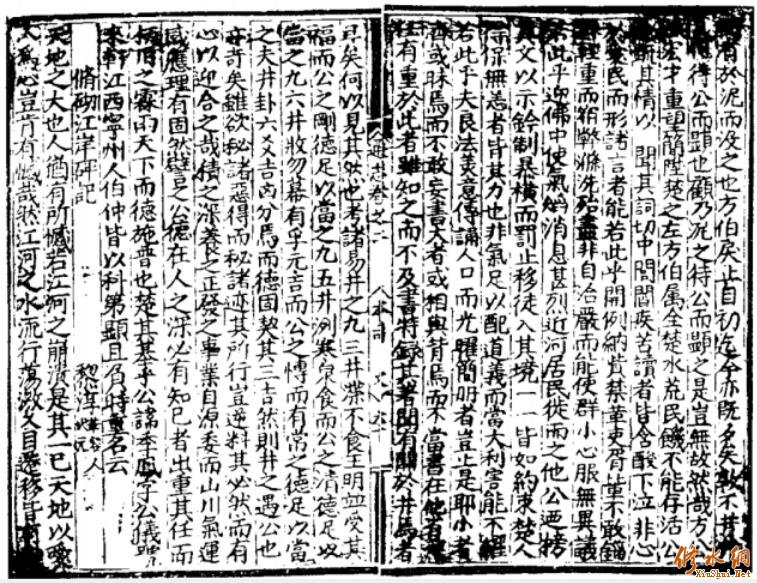 於泥而汲之也方伯侯止自初迄今亦既多矣
待公而顯也顧乃況之待公而顯之是豈無故然哉方公
宏才重望簡陞楚之左方伯属全楚水荒民饑不能存活公
其情以聞其詞切中閭閻疾苦讀者皆含酸下泣非心
愛民而形諸言者能若此乎開例納貴禁華吏胥輩不敢錙
輕重而積弊滌洗殆盡非自治嚴而能使群小心服無異議
若此乎迎佛中使氣焰消息甚烈近河居民徙而之他公西榜
文以示鈐制暴横而罰止移徙入其境一一皆如約束楚人
得保無恙者皆其力也非氣足以配道義而當大利害能不懼
若此乎夫良法美意傳誦人口而光曜簡册者豈止是耶小者
亦或昧焉而不敢妄書大者或相與背焉而不當書在他有
任有重於此者雖知之而不及書特録其著聞有關於井焉者
通志卷之二
耳矣何以見其然也考諸易井之九三井渫不食王明並受其
福而公之剛德足以當之九五井洌寒泉食而公之清德足以
當之九六井收勿幕有孚元吉而公之博而有常之德足以當
之夫井卦六爻吉凶分焉而德固契其三吉然則井之遇公也
奇矣雖欲秘諸惡得而秘諸亦迹其所行豈逆料其必然而有
心以迎合之哉積之深養之正發之事業自源委而山川氣運
感應理有固然譬之公德在人之深必有知已者出重其任而
之霖雨天下而德施普也楚其基乎公諱季鳳字公儀號
來軒江西寧州人伯仲皆以科第顯且負時重名云
脩砌江岸碑記 黎淳 華容人 状元
天地之大也人猶有所憾若江河之崩潰是其一已天地以曖
人為心豈肯有憾哉然江河之水流行蕩激久自遷移皆
修水網
XiuShui.Net